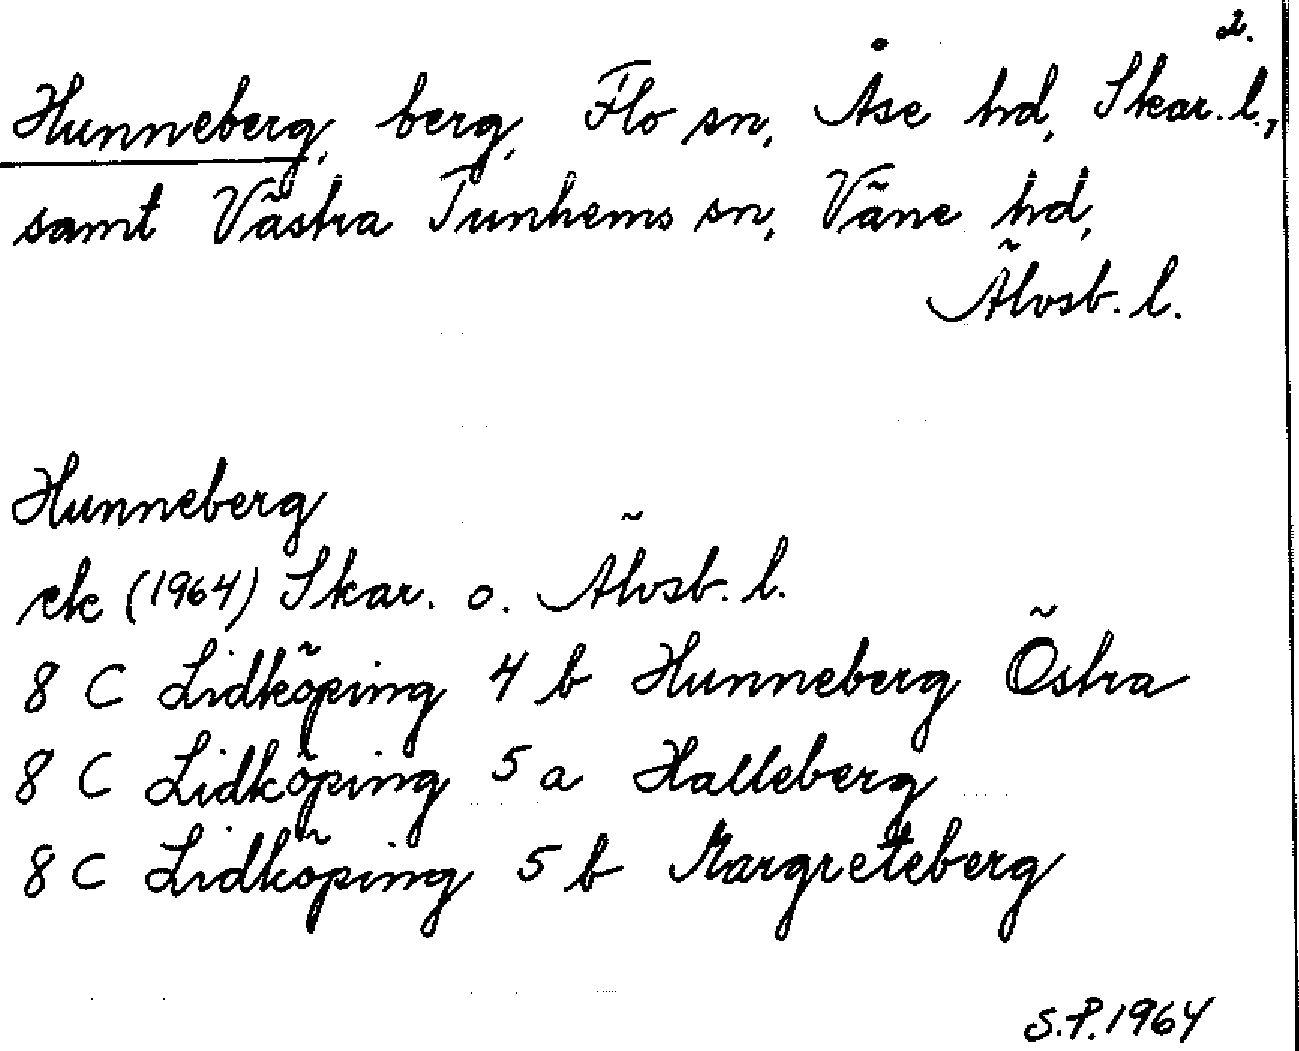 2.
Hunneberg, berg, Flo sn, Åse hd, Skar. l.,
samt Västra Tunhems sn, Väne hd,
Älvsb. l.
Hunneberg
ek (1964) Skar. o. Älvsb. l.
8 C Lidköping 4 b Hunneberg Östra
8 C Lidköping 5 a Halleberg
8 C Lidköping 5 b Margreteberg
S.P. 1964